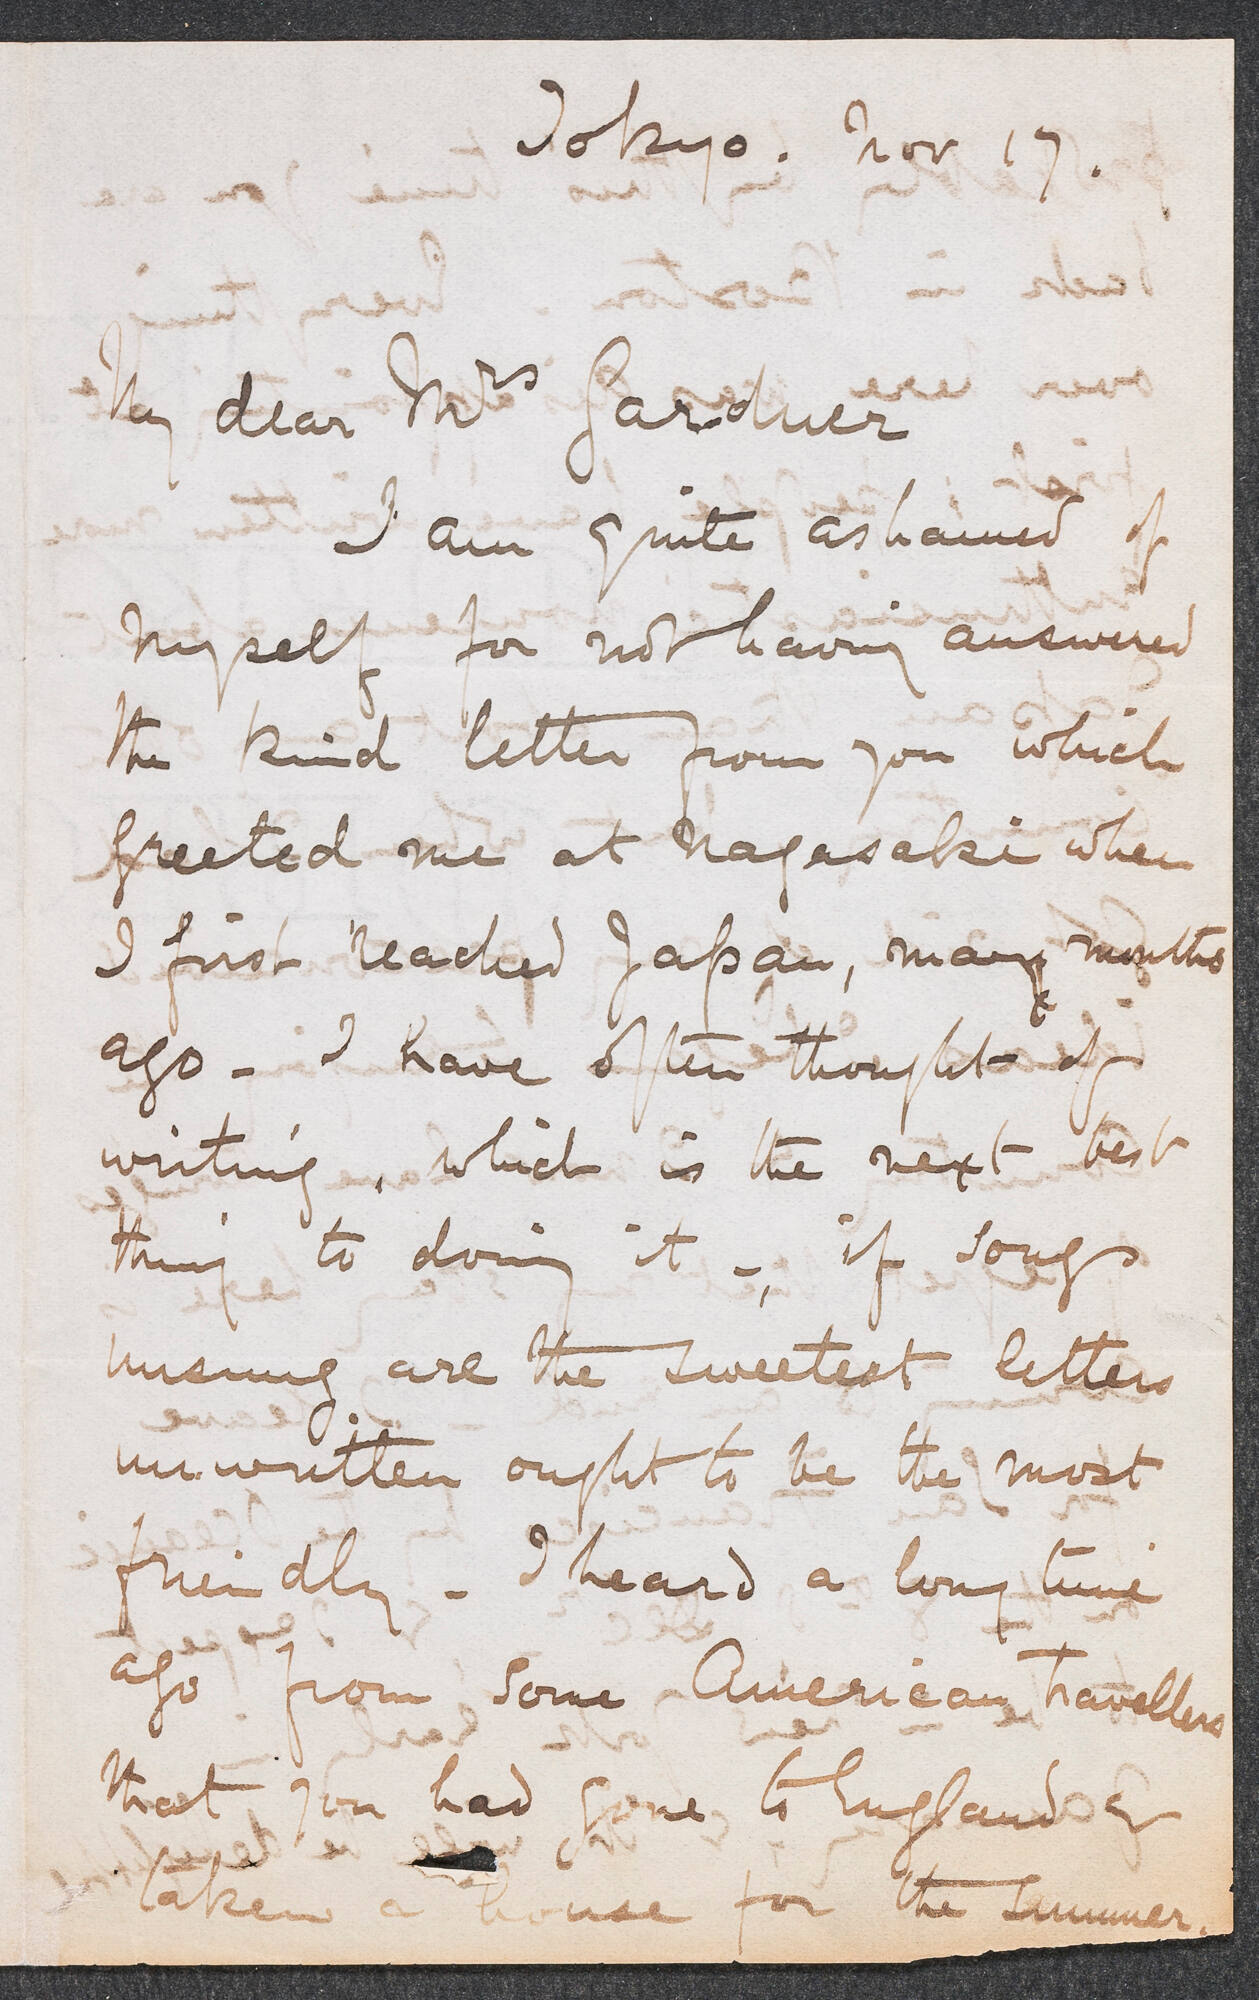 Tokyo. Nov 17.
My dear Mrs Gardner
I am quite ashamed of
myself for not having answered
the kind letter from you which
greeted me at Nagasaki when
I first reached Japan, many months
ago - I have often thought of
writing, which is the next best
thing to doing it -, if songs
unsung are the sweetest letters
unwritten ought to be the most
friendly - I heard a long time
ago from some American travellers
that you had gone to England &
taken a house for the summer.